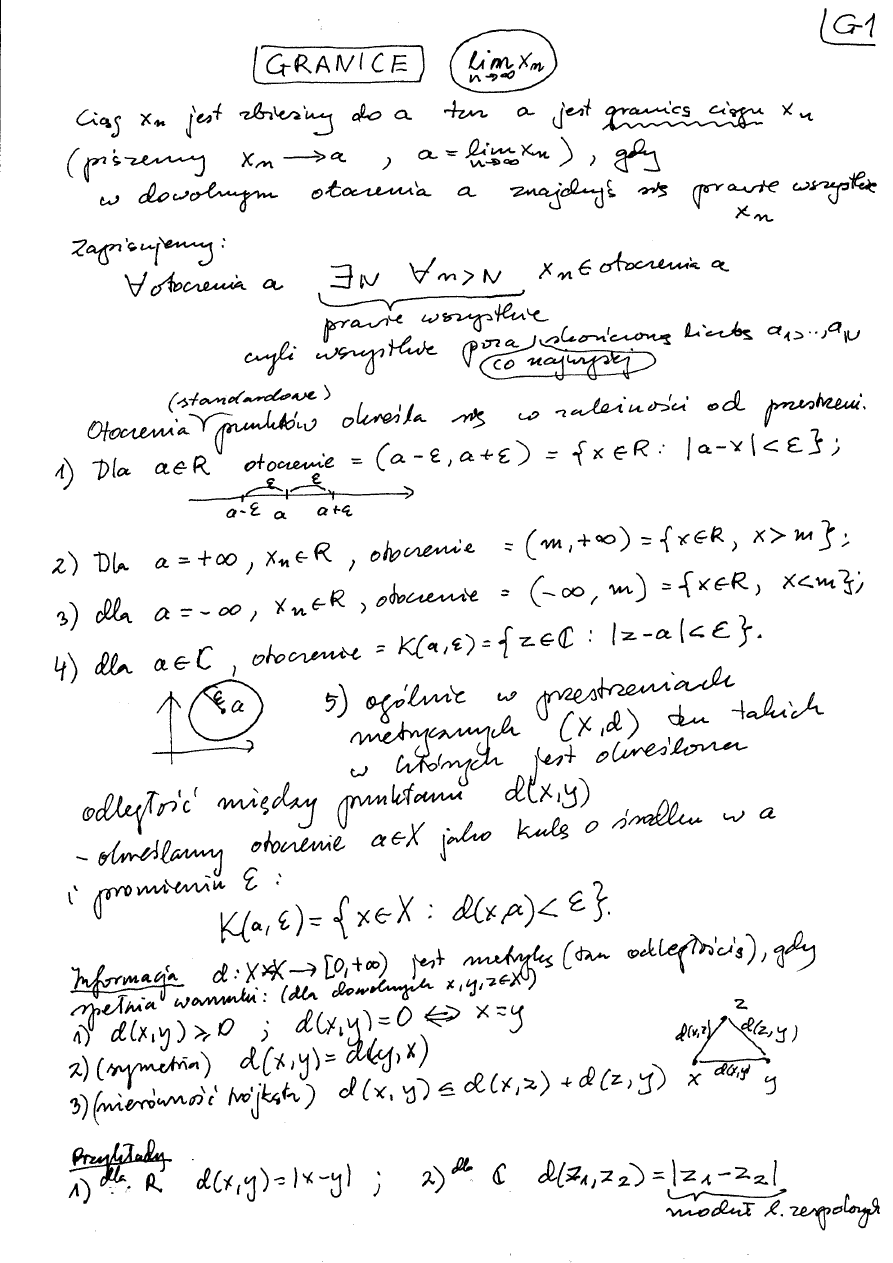 G1
GRANICE lim xn
n→∞
Ciąg xn jest zbieżny do a tzn a jest granicą ciągu xn
(piszemy xn → a , a = lim xn ) , gdy
n→∞
w dowolnym otoczeniu a znajdują się prawie wszystkie
xn
Zapisujemy:
∀ otoczenia a ∃N ∀n>N xn ∈ otoczenia a
prawie wszystkie
czyli wszystkie poza skończoną liczbą a1,..,aN
co najwyżej
(standardowe)
Otoczenia punktów określa się w zależności od przestrzeni.
1) Dla a∈R otoczenie = (a-ε, a+ε) = {x∈R : |a-x|<ε};
ε ε
a-ε a a+ε
2) Dla a = +∞, xn∈R, otoczenie = (m,+∞) = {x∈R, x>m};
3) dla a = -∞, xn∈R, otoczenie = (-∞, m) = {x∈R, x<m};
4) dla a∈ℂ, otoczenie = K(a,ε) = {z∈ℂ : |z-a|<ε}.
ε a
5) ogólnie w przestrzeniach
metrycznych (X,d) tzn takich
w których jest określona
odległość między punktami d(x,y)
- określamy otoczenie a∈X jako kulę o środku w a
i promieniu ε :
K(a,ε) = {x∈X : d(x,a)<ε}.
Informacja d: X×X → [0,+∞) jest metryką (tzn odległością), gdy
spełnia warunki: (dla dowolnych x,y,z∈X)
1) d(x,y) ≥ 0 ; d(x,y)=0 ⇔ x=y
2) (symetria) d(x,y) = d(y,x)
3) (nierówność trójkąta) d(x,y) ≤ d(x,z) + d(z,y)
z
d(x,z) d(z,y)
x d(x,y) y
Przykłady
1) dla R d(x,y) = |x-y| ; 2) dla ℂ d(z1,z2) = |z1-z2|
moduł l. zespolonych